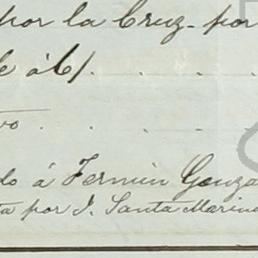 por la Cruz - por
é á 6/. . . .
vo . . . .
do á Fermin Gonza
ta por J. Santa Marina